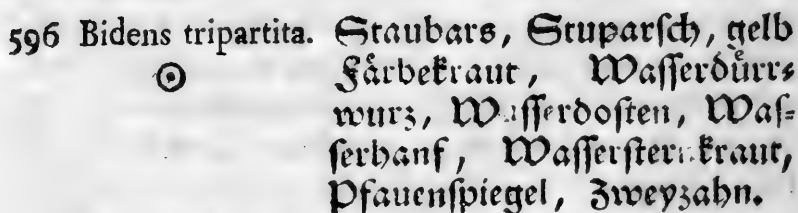 596 Bidens tripartita. Staubars, Stuparsch, gelb
☉ Färbekraut, Wasserdürr-
wurz, Wasserdosten, Was-
serhanf, Wassersternkraut,
Pfauenspiegel, Zweyzahn.